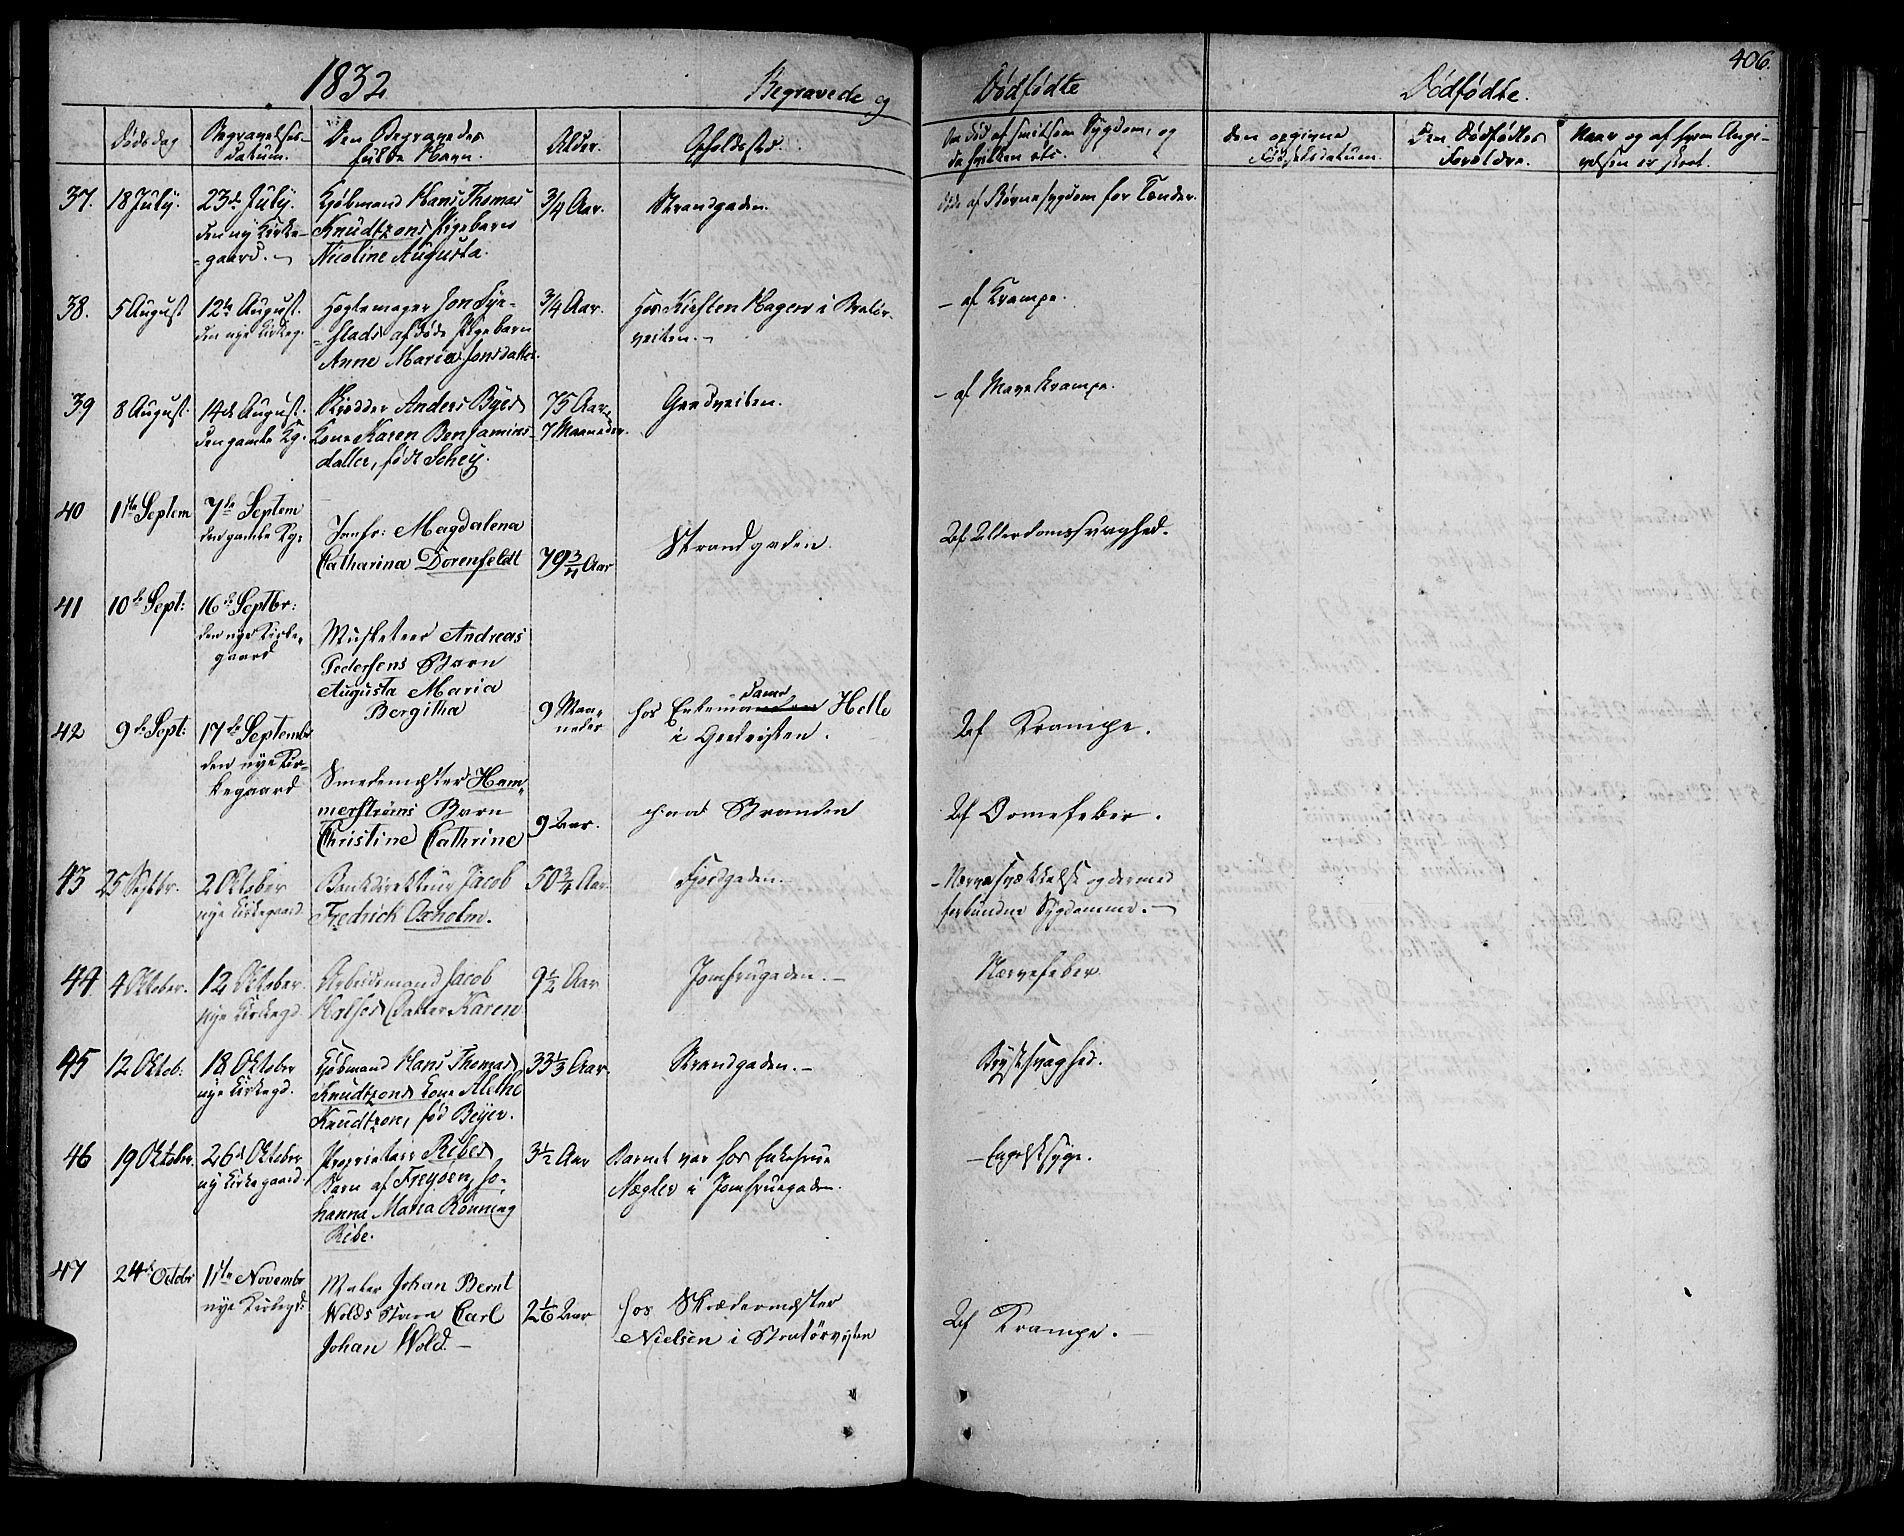 406.
1832
Begravede og
Dødfødte
Dødfødte.
Dødsdag
Begravelses-
datum.
Den Begravedes
fulde Navn.
Alder.
Opholdsted.
Om død af smitsom Sygdom, og
da hvilken etc.
Den opgivne
Fødselsdatum.
Den Dødfødtes
Forældre.
Naar og af hvem Angi-
velsen er skeet.
37. 18 July. 23de July.
den ny Kirke-
-gaard.
Kjøbmand Hans Thomas
Knudtzons Pigebarn
Nicoline Augusta.
3/4 Aar.
Strandgaden.
døde af Børnesygdom for Tænder.
38. 5 August 12te August.
den nye Kirkeg.
Jon Sye-
-stads afdøde Pigebarn
Anne Maria Jonsdatter.
3/4 Aar.
hos Kirsten Hagen i
veiten.
- af Krampe.
39 8 August. 14de August.
den gamle Kg.
Anders Byes
Kone Karen Benjamins-
datter, født Schey.
75 Aar,
7 Maaneder.
Gredveiten.
- af Mavekrampe.
40 1ste Septem 7de Septem
den gamle Kg.
Jomfr: Magdalena
Catharina Dorenfeldt
79 3/4 Aar
Strandgaden.
Af Alderdomssvaghed.
41 10de Sept: 16de Septbr:
den nye Kirke-
gaard
Musketeer Andreas
Pedersens Barn
Augusta Maria
Bergitha
9 Maa-
neder
hos Helle
i Gredveiten.
Af Krampe.
42 9de Sept: 17de Septembr
den nye Kir-
kegaard
Smedemester Ham-
merstrøms Barn
Christine Cathrine
9 Aar.
Stranden
Af Ormefeber.
43 25 Septbr. 2 Oktober
nye Kirkegaard
Bankdirekteur Jacob
Fredrich Oxholm.
50 3/4 Aar.
Fjordgaden.
- Nervesvækkelse og dermed
forbundne Sygdomme.
44. 4 Oktober. 12 Oktober.
nye Kirkegd.
Arbeidsmand Jacob
Halses Datter Karen
9 1/2 Aar
Jomfrugaden.
Nervefeber
45 12 Oktob. 18 Oktober
nye Kirkegd.
Kjøbmand Hans Thomas
Knudtzons Kone Alethe
Knudtzon, fød Beyer.
33 1/3 Aar.
Strandgaden.
Brystsvaghed.
46 19 Oktober. 26de Oktober
ny Kirkegaard
Proprietair Ribes
Barn af Freyøen, Jo-
hanna Maria Rønning
Ribe.
3 1/2 Aar
Barnet var hos Enkefrue
Nægler i Jomfruegaden.
- Engelsksyge.
47 24de Octobr 11te Novembr
nye Kirkegd:
Maler Johan Bernt
Wolds Barn Carl
Johan Wold.
2 1/6 Aar
hos Skrædermester
Nielsen i
Af Krampe.